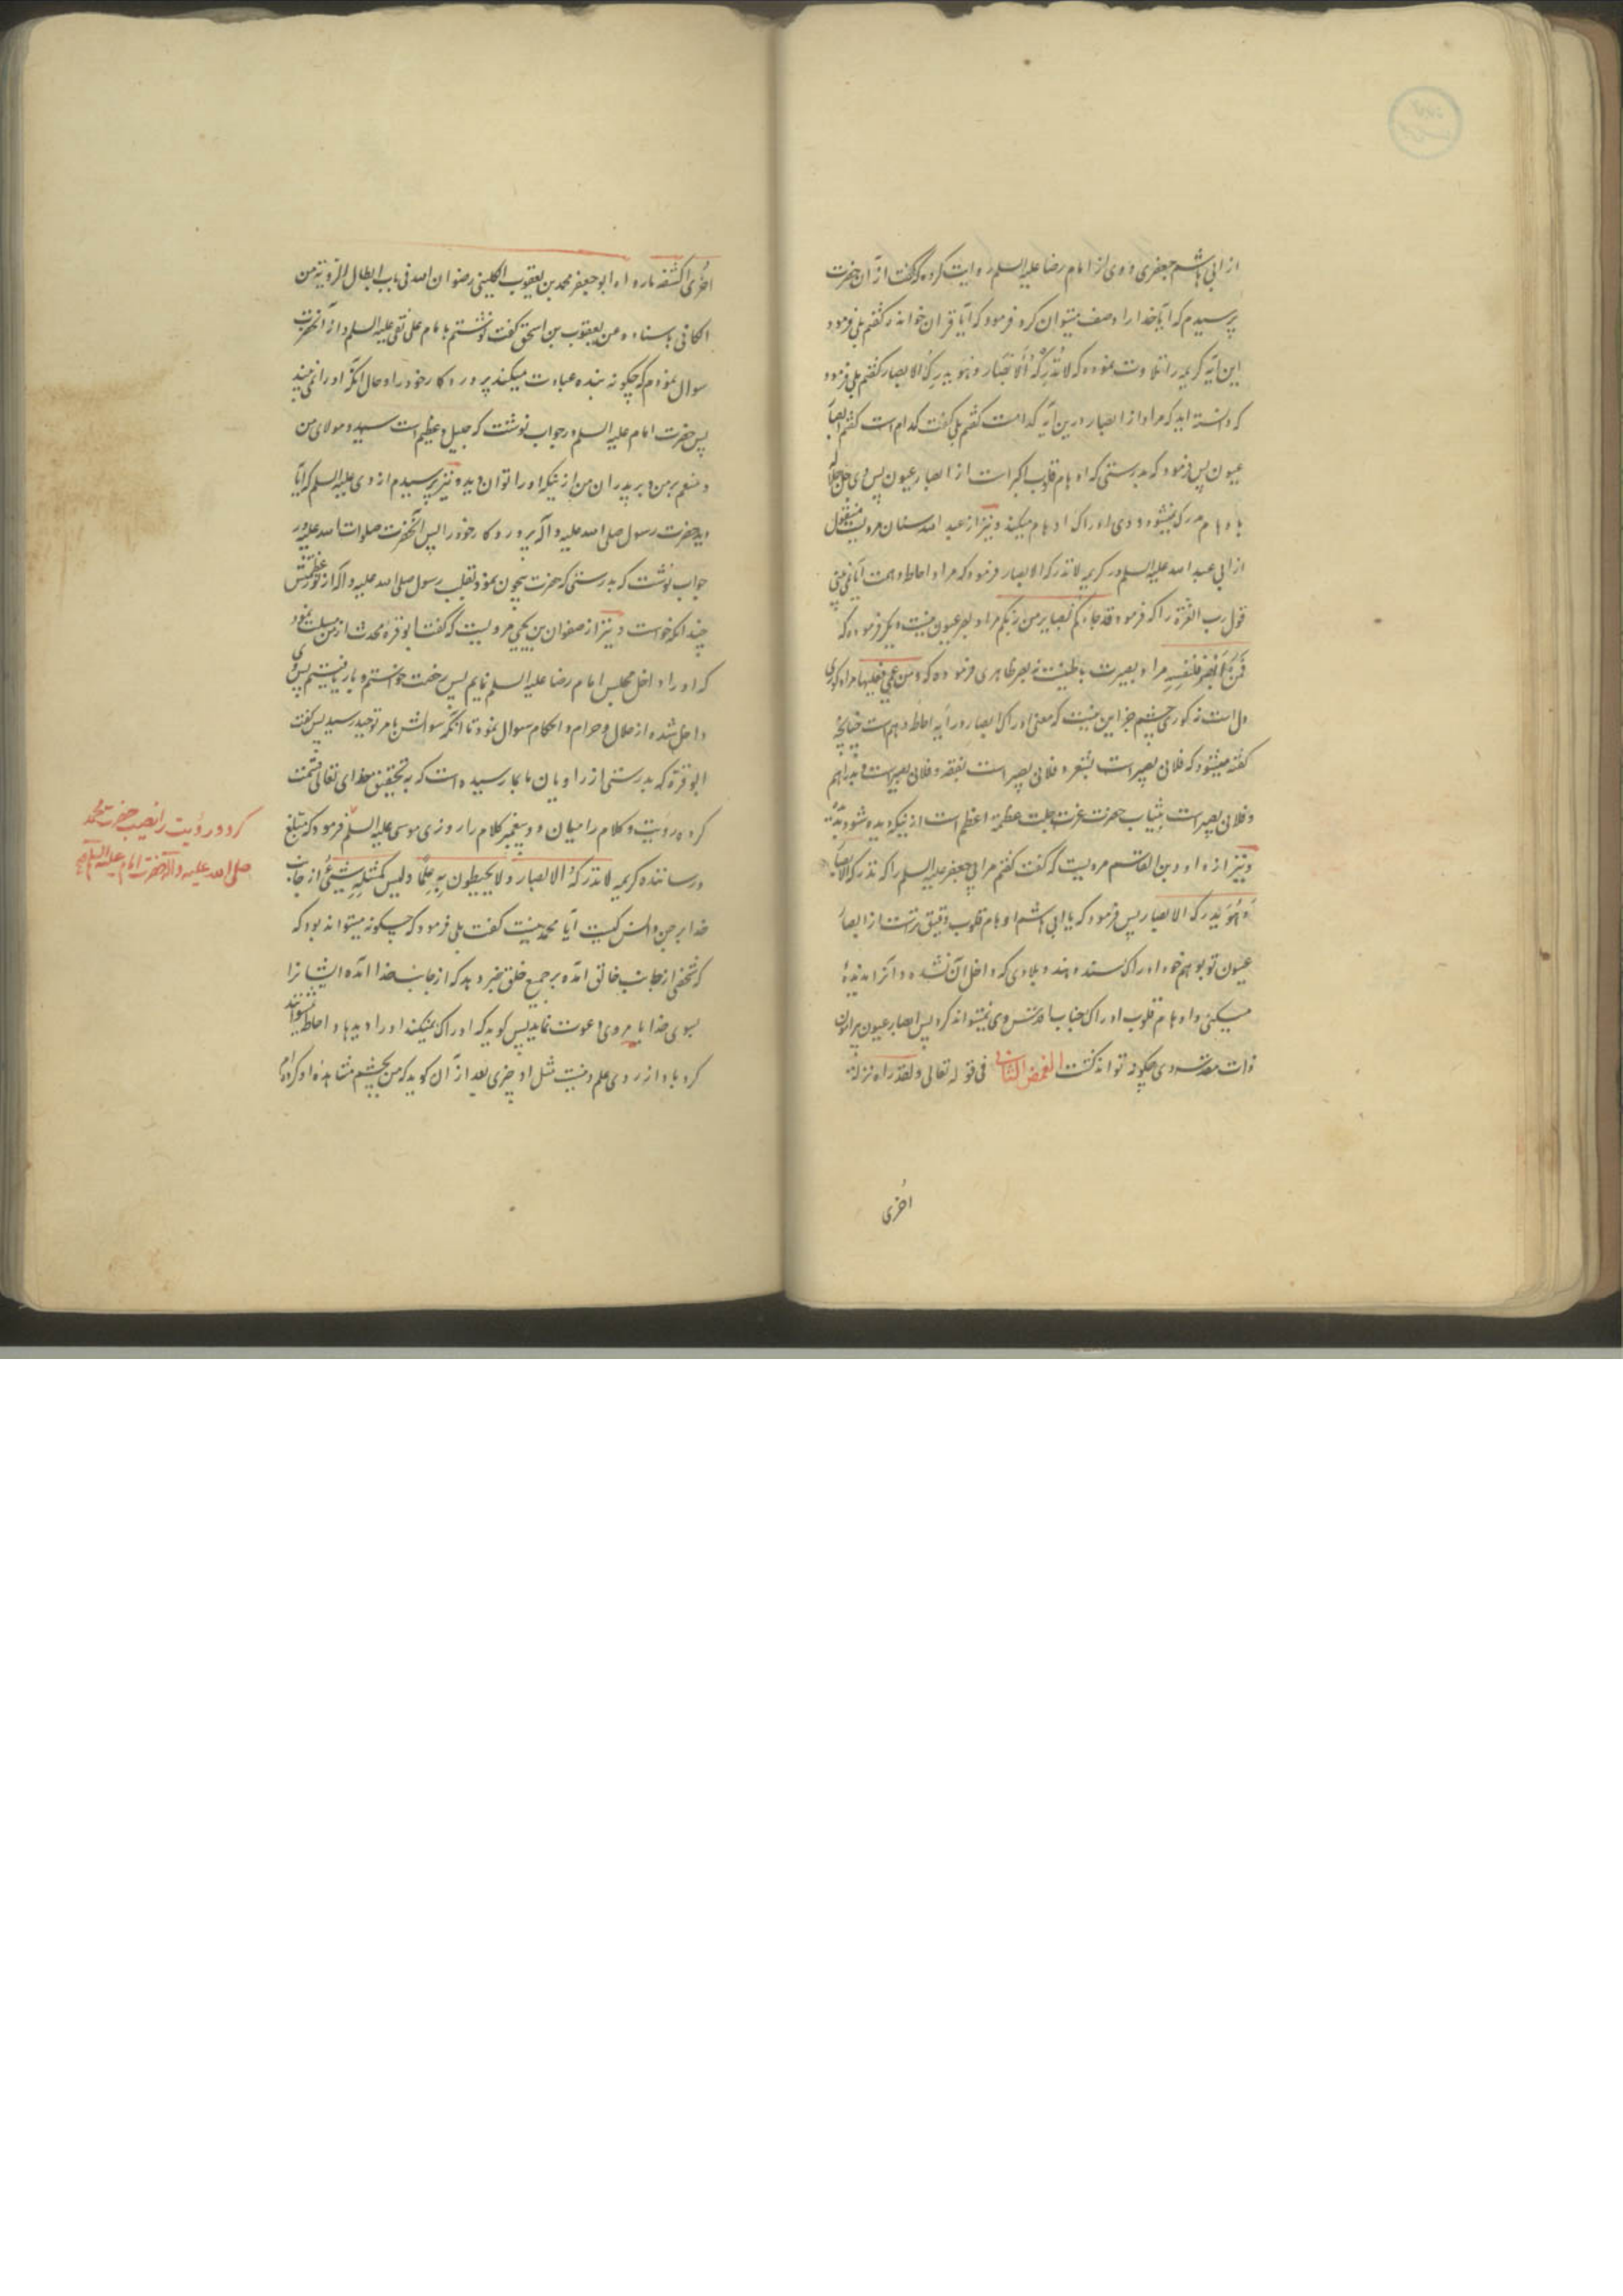 از ابی هاشم جعفری و وی از امام رضا علیه السلم روایت کرده که گفت از آن حضرت
پرسیدم که آیا خدا را وصف میتوان کرد فرمود که آیا قران خوانده گفتم بلی فرمود
این آیه کریمه را تلاوت نموده که لا تُدرکُهُ الاَبصار و هو یدرک الابصار گفتم بلی فرمود
که دانسته اید که مراد از ابصار درین آیه کدامست گفتم بلی گفت کدام است گفتم ابصار
عیون پس فرمود که بدرستی که اوهام قلوب اکبر است از ابصار عیون پس وی جل جلاله
باوهام مدرک نمیشود و وی ادراک اوهام میکند و نیز از عبد الله سنان مرویست منقول
از ابی عبد الله علیه السلم در کریمه لا تدرکه الابصار فرمود که مراد احاطه وهمست آیا نمی بینی
قول رب العزة را که فرمود قد جاءکم بصایر من ربکم مراد بصر عیون نیست و دیگر فرموده که
فَمَن اَبصَرَ فلنفسِهِ مراد بصیرت باطنیست نه بصر ظاهری و فرموده که و من عمی فعلیها مراد کوری
دل است نه کوری چشم جز این نیست که معنی ادراک ابصار در آیه احاطه وهم است چنانچه
گفته میشود که فلانی بصیر است بشعر و فلانی بصیر است بفقه و فلانی بصیر است بدراهم
و فلانی بصیر است بثیاب حضرت عزت جلت عظمته اعظم است از نیکه دیده شود بدیده
و نیز از داود بن القاسم مرویست که گفت گفتم مر ابی جعفر علیه السلم را که لا تدرکه الابصار
وَ هُوَ یدرک الابصار پس فرمود که یا ابی هاشم اوهام قلوب دقیق ترست از ابصار
عیون تو بوهم خود ادراک سند و هند و بلادی که داخل آن نشده و آنرا ندیده
میکنی و اوهام قلوب ادراک جناب اقدس وی نمیتواند کرد پس ابصار عیون پیرامون
ذات مقدس وی چگونه تواند گشت الغمض الثانی فی قوله تعالی و لقد راه نزلة
اُخری
اخُری اکشفه ما رواه ابو جعفر محمد بن یعقوب الکلینی رضوان الله فی باب ابطال الرویة من
الکافی باسناده عن یعقوب بن اسحق گفت نوشتم بامام علی نقی علیه السلم و از آنحضرت
سوال نمودم که چگونه بنده عبادت میکند پروردکار خود را و حال انکه او را نمی بیند
پس حضرت امام علیه السلم در جواب نوشت که جلیل و عظیم است سید و مولای من
و منعم بر من و بر پدران من از نیکه او را توان دید و نیز پرسیدم از وی علیه السلم که آیا
دید حضرت رسول صلی الله علیه و آله پروردکار خود را پس آنحضرت صلوات الله علیه در
جواب نوشت که بدرستی که حضرت بیچون نمود بقلب رسول صلی الله علیه و آله از نور عظمتش
چندانکه خواست و نیز از صفوان بن یحیی مرویست که گفت ابو قرهٔ محدث از من مسئلت نمود
که او را داخل مجلس امام رضا علیه السلم نمایم پس رخصت خواستم و بار یافتیم پس وی
داخل شده از حلال و حرام و احکام سوال نمود تا انکه سوالش بامر توحید رسید پس گفت
ابو قره که بدرستی از راویان بما رسیده است که به تحقیق خدای تعالی قسمت
کرده رویت و کلام را میان دو پیغمبر کلام را روزی موسی علیه السلم فرمود که مبلغ
و رساننده کریمه لا تدرکهُ الابصار و لا یحیطون بِهِ عِلمًا و لیس کمثلهِ شیءٌ از جانب
خدا بر جن و انس کیست آیا محمد نیست گفت بلی فرمود که چگونه میتواند بود که
که شخصی از جانب خالق امده بر جمیع خلق خبر دهد که از جانب خدا امده ایشانرا
بسوی خدا بامر وی دعوت نماید پس کوید که ادراک نمیکند او را دیدها و احاطه نمیتوانند
کرد باو از روی علم و نیست مثل او چیزی بعد از آن کوید که من بچشم مشاهده او کرده ام
کرد و رویت را نصیب حضرت محمد
صلی الله علیه و آله آنحضرت امام علیه السلم